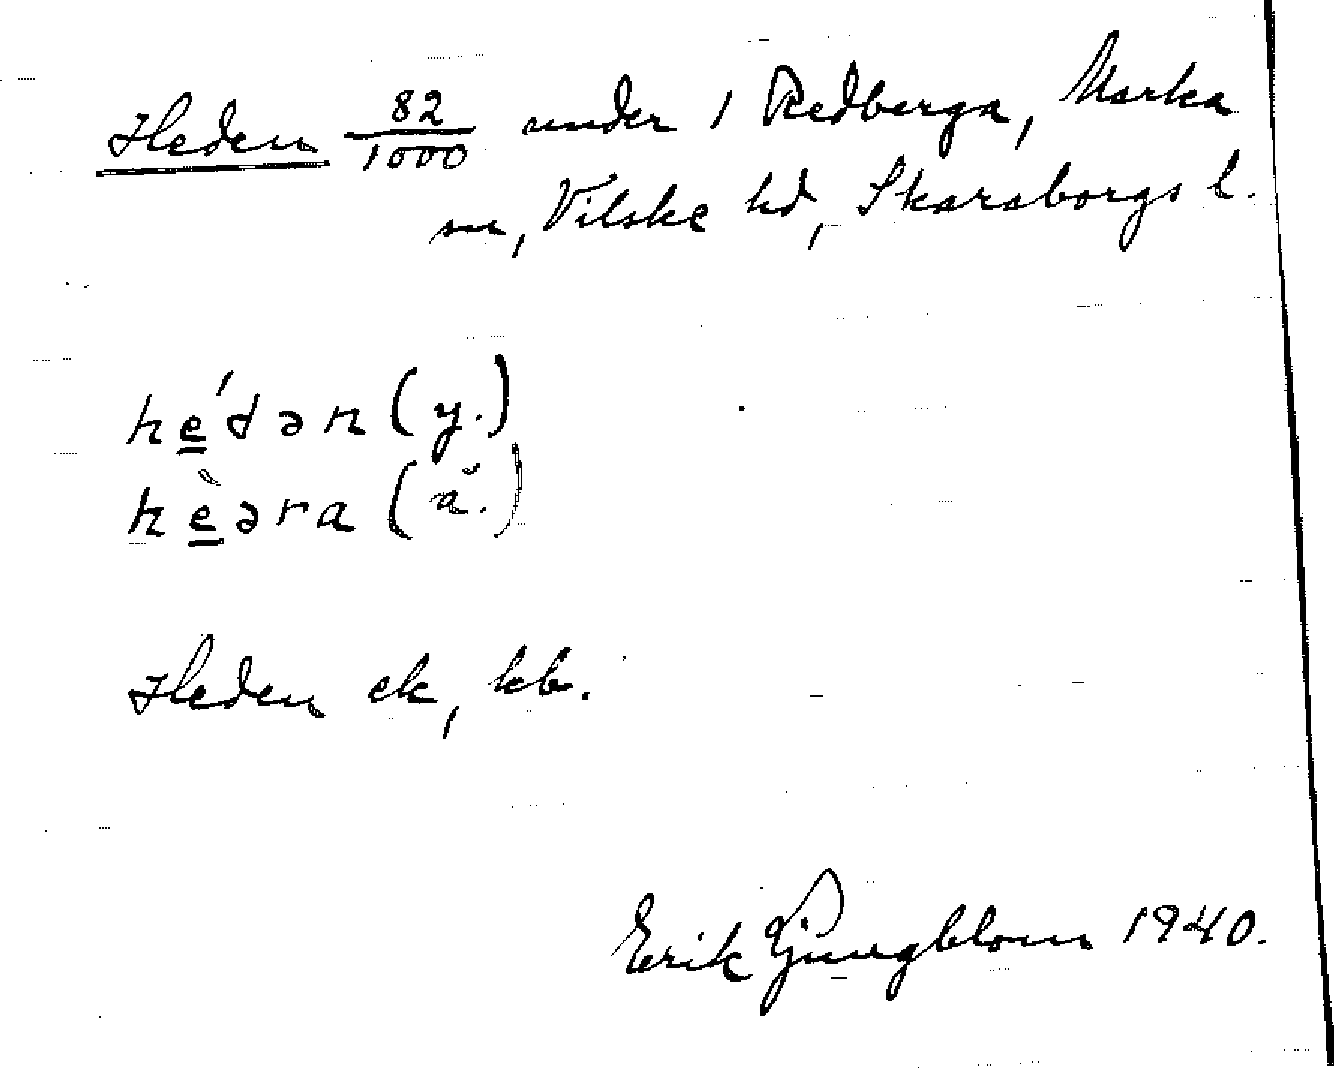 Heden 82/1000 under 1 Redberga, Marka
sn, Vilske hd, Skaraborgs l.
he̲´dən (y.)
hè̲əra (ä.)
Heden ek, kb.
Erik Ljungblom 1940.